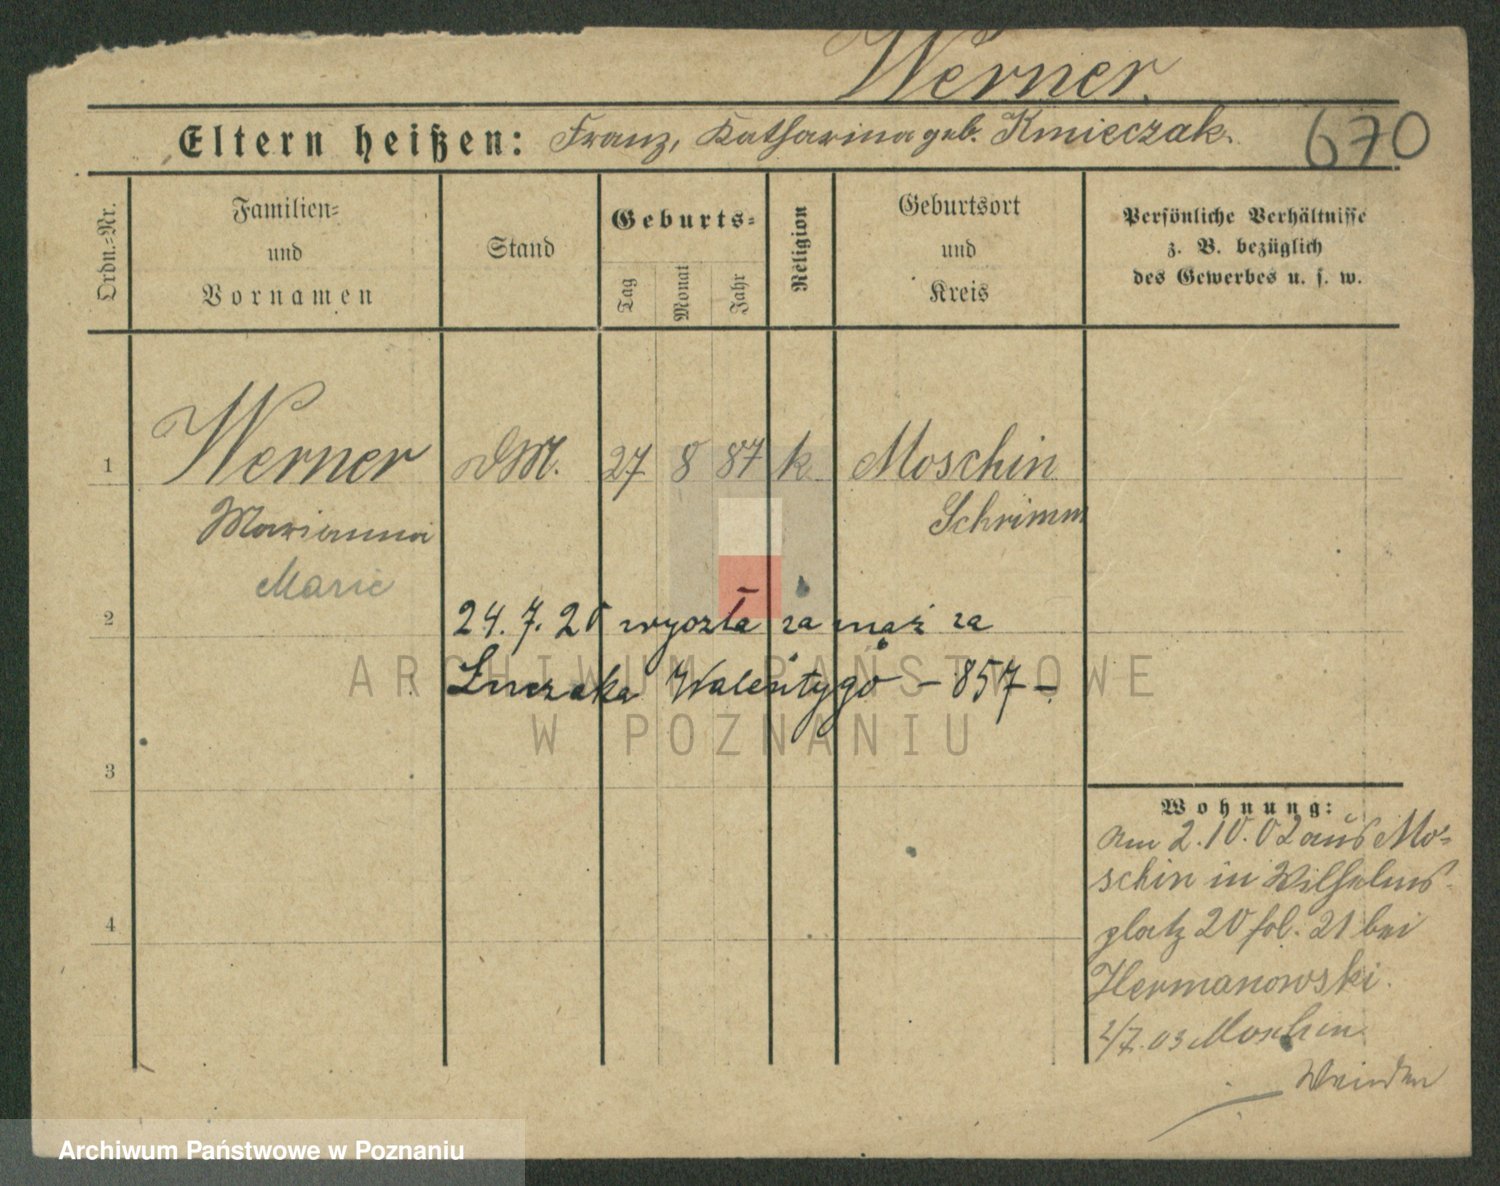 Werner.
Eltern heißen: Franz, Katharina geb. Kmieczak.
670
Ordn.-Nr.
Familien-
und
Vornamen
Stand
Geburts-
Tag
Monat
Jahr
Religion
Geburtsort
und
Kreis
Persönliche Verhältnisse
z. B. bezüglich
des Gewerbes u. s. w.
1
Werner DM. 27 8 87 k Moschin
Marianna Schrimm
Marie
2
24. 7. 20 wyszła za mąż za
Łuczaka Walentygo - 857 -
ARCHIWUM PAŃSTWOWE
W POZNANIU
3
4
Wohnung:
Am 2.10.02 aus Mo-
schin in Wilhelms-
platz 20 fol. 21 bei
Hermanowski.
2/7.03 Moschin
Wenden
Archiwum Państwowe w Poznaniu